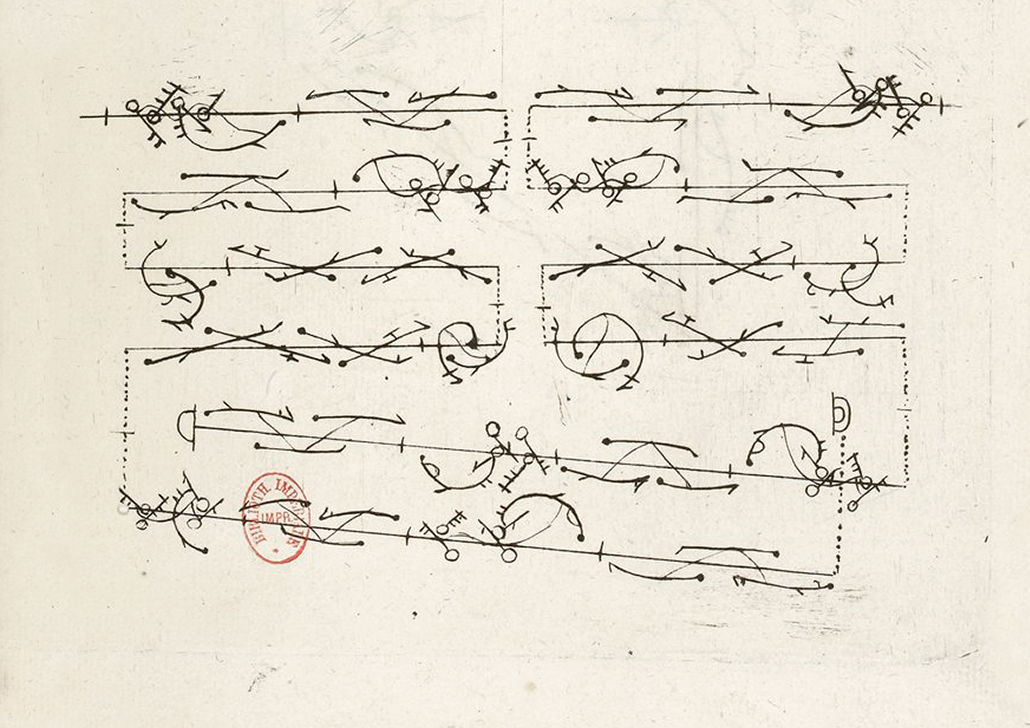 BIBLIOTH. IMPERIALE
IMPR.